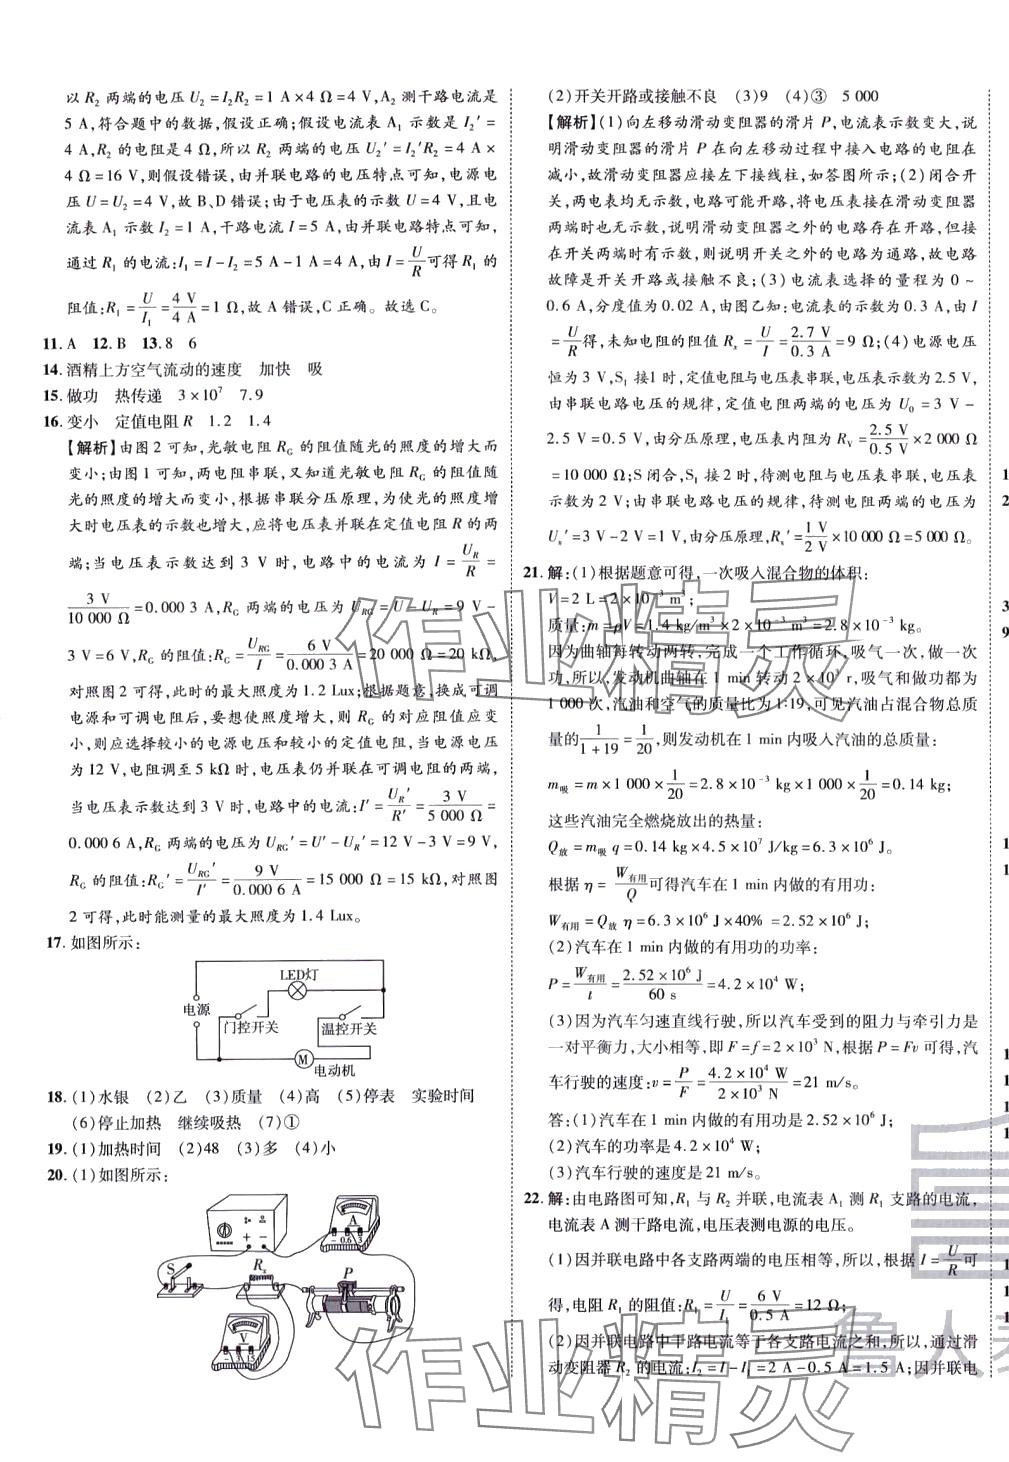 以 R₂ 两端的电压 U₂=I₂R₂=1 A×4 Ω=4 V,A₂ 测干路电流是
5 A,符合题中的数据,假设正确;假设电流表 A₁ 示数是 I₂′=
4 A,R₂ 的电阻是 4 Ω,所以 R₂ 两端的电压 U₂′=I₂′R₂=4 A×
4 Ω=16 V,则假设错误,由并联电路的电压特点可知,电源电
压 U=U₂=4 V,故 B、D 错误;由于电压表的示数 U=4 V,且电
流表 A₁ 示数 I₂=1 A,干路电流 I=5 A,由并联电路特点可知,
通过 R₁ 的电流:I₁=I-I₂=5 A-1 A=4 A,由 I=U/R 可得 R₁ 的
阻值:R₁=U/I₁=4 V/4 A=1 Ω,故 A 错误,C 正确。故选 C。
11. A 12. B 13. 8 6
14. 酒精上方空气流动的速度 加快 吸
15. 做功 热传递 3×10⁷ 7.9
16. 变小 定值电阻 R 1.2 1.4
【解析】由图 2 可知,光敏电阻 R_G 的阻值随光的照度的增大而
变小;由图 1 可知,两电阻串联,又知道光敏电阻 R_G 的阻值随
光的照度的增大而变小,根据串联分压原理,为使光的照度增
大时电压表的示数也增大,应将电压表并联在定值电阻 R 的两
端;当电压表示数达到 3 V 时,电路中的电流为 I=U_R/R=
3 V/10 000 Ω=0.000 3 A,R_G 两端的电压为 U_RG=U-U_R=9 V-
3 V=6 V,R_G 的阻值:R_G=U_RG/I=6 V/0.000 3 A=20 000 Ω=20 kΩ,
对照图 2 可得,此时的最大照度为 1.2 Lux;根据题意,换成可调
电源和可调电阻后,要想使照度增大,则 R_G 的对应阻值应变
小,则应选择较小的电源电压和较小的定值电阻,当电源电压
为 12 V,电阻调至 5 kΩ 时,电压表仍并联在可调电阻的两端,
当电压表示数达到 3 V 时,电路中的电流:I′=U_R′/R′=3 V/5 000 Ω=
0.000 6 A,R_G 两端的电压为 U_RG′=U′-U_R′=12 V-3 V=9 V,
R_G 的阻值:R_G′=U_RG′/I′=9 V/0.000 6 A=15 000 Ω=15 kΩ,对照图
2 可得,此时能测量的最大照度为 1.4 Lux。
17. 如图所示:
LED灯
电源
门控开关 温控开关
M 电动机
18. (1)水银 (2)乙 (3)质量 (4)高 (5)停表 实验时间
(6)停止加热 继续吸热 (7)①
19. (1)加热时间 (2)48 (3)多 (4)小
20. (1)如图所示:
A
- 0.6 3
S Rₓ P
V
- 3 15
(2)开关开路或接触不良 (3)9 (4)③ 5 000
【解析】(1)向左移动滑动变阻器的滑片 P,电流表示数变大,说
明滑动变阻器的滑片 P 在向左移动过程中接入电路的电阻在
减小,故滑动变阻器应接左下接线柱,如答图所示;(2)闭合开
关,两电表均无示数,电路可能开路,将电压表接在滑动变阻器
两端时也无示数,说明滑动变阻器之外的电路存在开路,但接
在开关两端时有示数,则说明开关之外的电路为通路,故电路
故障是开关开路或接触不良;(3)电流表选择的量程为 0~
0.6 A,分度值为 0.02 A,由图乙知:电流表的示数为 0.3 A,由 I
=U/R得,未知电阻的阻值 Rₓ=U/I=2.7 V/0.3 A=9 Ω;(4)电源电压
恒为 3 V,S₁ 接1时,定值电阻与电压表串联,电压表示数为 2.5 V,
由串联电路电压的规律,定值电阻两端的电压为 U₀=3 V-
2.5 V=0.5 V,由分压原理,电压表内阻为 R_V=2.5 V/0.5 V×2 000 Ω
=10 000 Ω;S 闭合,S₁ 接2时,待测电阻与电压表串联,电压表
示数为 2 V;由串联电路电压的规律,待测电阻两端的电压为
Uₓ′=3 V-2 V=1 V;由分压原理,Rₓ′=1 V/2 V×10 000 Ω=5 000 Ω。
21. 解:(1)根据题意可得,一次吸入混合物的体积:
V=2 L=2×10⁻³ m³;
质量:m=ρV=1.4 kg/m³×2×10⁻³ m³=2.8×10⁻³ kg。
因为曲轴每转动两转,完成一个工作循环,吸气一次、做一次
功,所以,发动机曲轴在 1 min 转动 2×10³ r,吸气和做功都为
1 000 次,汽油和空气的质量比为 1∶19,可见汽油占混合物总质
量的1/(1+19)=1/20,则发动机在 1 min 内吸入汽油的总质量:
m吸=m×1 000×1/20=2.8×10⁻³ kg×1 000×1/20=0.14 kg;
这些汽油完全燃烧放出的热量:
Q放=m吸 q=0.14 kg×4.5×10⁷ J/kg=6.3×10⁶ J。
根据 η=W有用/Q可得汽车在 1 min 内做的有用功:
W有用=Q放 η=6.3×10⁶ J×40%=2.52×10⁶ J;
(2)汽车在 1 min 内做的有用功的功率:
P=W有用/t=2.52×10⁶ J/60 s=4.2×10⁴ W;
(3)因为汽车匀速直线行驶,所以汽车受到的阻力与牵引力是
一对平衡力,大小相等,即 F=f=2×10³ N,根据 P=Fv 可得,汽
车行驶的速度:v=P/F=4.2×10⁴ W/2×10³ N=21 m/s。
答:(1)汽车在 1 min 内做的有用功是 2.52×10⁶ J;
(2)汽车的功率是 4.2×10⁴ W;
(3)汽车行驶的速度是 21 m/s。
22. 解:由电路图可知,R₁ 与 R₂ 并联,电流表 A₁ 测 R₁ 支路的电流,
电流表 A 测干路电流,电压表测电源的电压。
(1)因并联电路中各支路两端的电压相等,所以,根据 I=U/R可
得,电阻 R₁ 的阻值:R₁=U/I₁=6 V/0.5 A=12 Ω;
(2)因并联电路中干路电流等于各支路电流之和,所以,通过滑
动变阻器 R₂ 的电流:I₂=I-I₁=2 A-0.5 A=1.5 A;因并联电
作业精灵
作业精灵